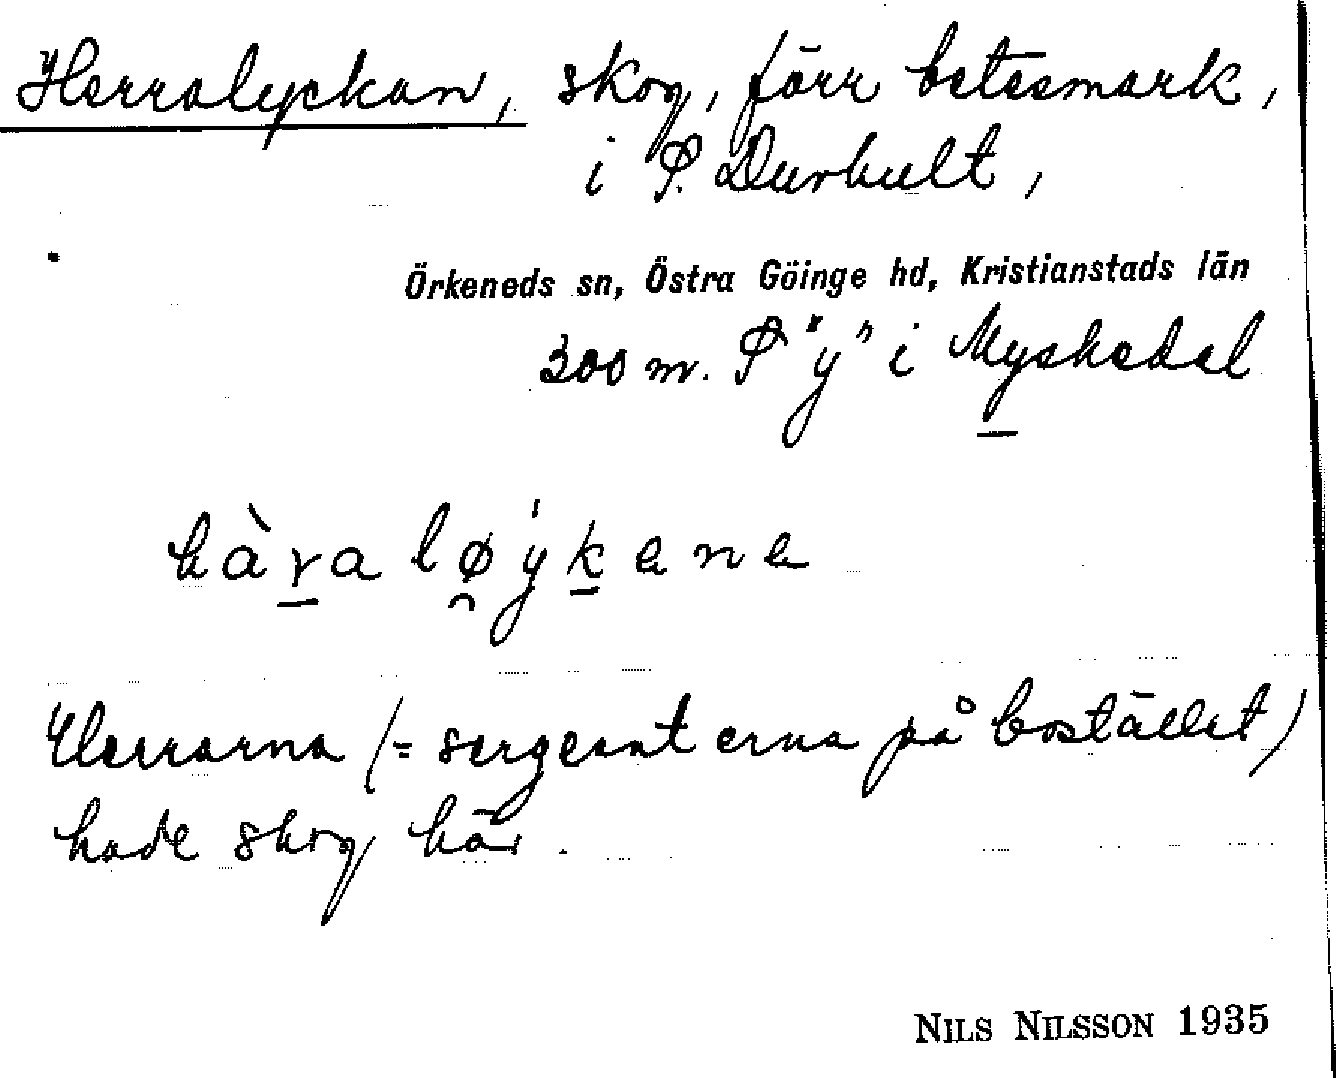 Herralyckan, skog, förr betesmark,
i P. Durhult,
Örkeneds sn, Östra Göinge hd, Kristianstads län
300 m. P "y" i Myshedal
hàraløýkene
Herrarna (= sergeanterna på bostället)
hade skog här.
NILS NILSSON 1935